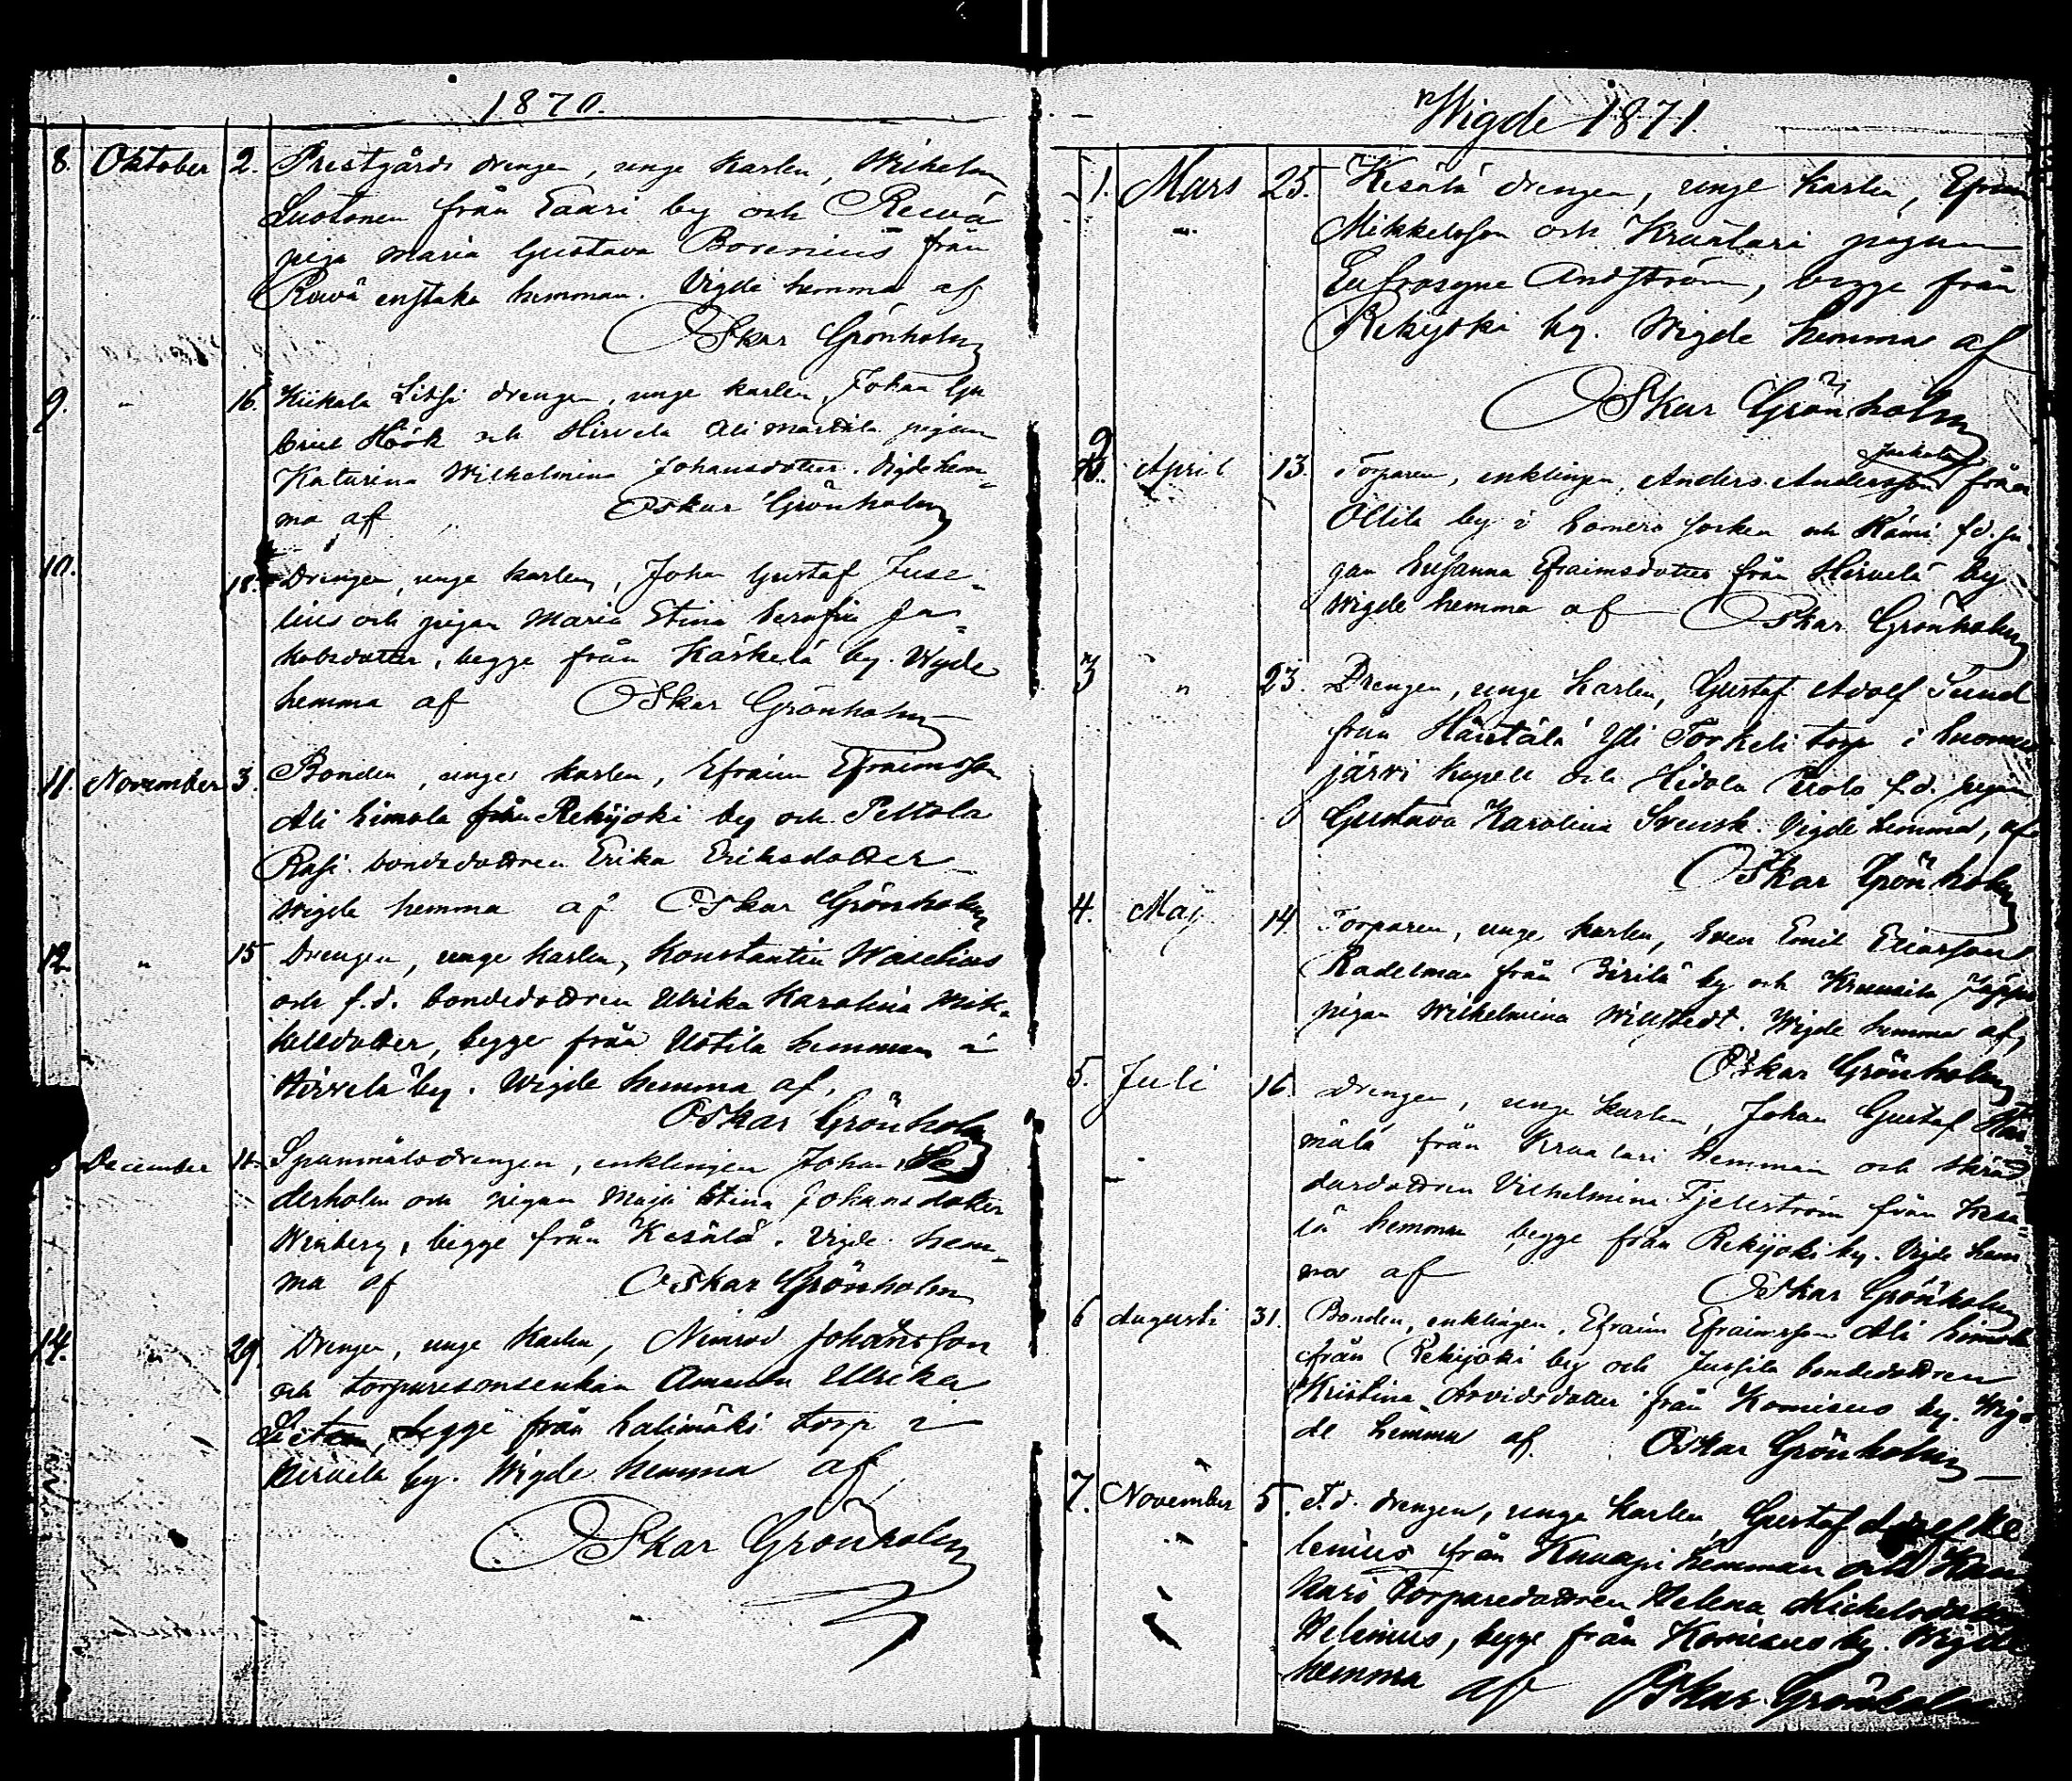 1870.
8. Oktober 2. Prestgårds drengen, unge karlen, Wilhelm
Luotonen från Saari by och Rewä
piga Maria Gustava Borenius från
Rewä enstaka hemman. Vigde hemma af
Oskar Grönholm
9. " 16. Kiikala drengen, unge karlen, Johan Ga
briel Höök och Hirvelä Ali Marttila pigan
Katarina Wilhelmina Johansdotter. Vigde hem-
ma af Oskar Grönholm
10. 18. Drengen, unge karlen, Johan Gustaf Juse-
lius och pigan Maria Stina Serafia Ja-
kobsdotter, begge från Kärkelä by. Wigde
hemma af Oskar Grönholm
11. November 3. Bonden, unge karlen, Efraim Efraimsson
Ali Simola från Rekijoki by och Peltola
Rasi bondedottren Erika Eriksdotter
Wigde hemma af Oskar Grönholm
12. " 15 Drengen, unge karlen, Konstantin Waselius
och f.d. bondedottren Ulrika Karolina Mik-
kelsdotter, begge från Uotila hemman i
Hirvelä by. Wigde hemma af,
Oskar Grönholm
December Spanmålsdrengen, enklingen Johan
derholm och pigan Maja Stina Johansdotter
Winberg, begge från Kesälä. Vigde hem-
ma af Oskar Grönholm
14. " 29. Drengen, unge karlen, Nimrod Johansson
och torparesonsenkan Amanda Ulrika
begge från Salimäki torp i
Hirvelä by. Wigde hemma af,
Oskar Grönholm
Wigde 1871.
1. Mars 25. Kesälä drengen, unge karlen, Efraim
Mikkelsson och Kruatari pigan
Eufrosyne Andström, begge från
Rekijoki by. Wigde hemma af
Oskar Grönholm
2 April 13. Torparen, enklingen Anders Andersson från
Ollila by i Somero socken och Kämi f.d. pi-
gan Susanna Efraimsdotter från Hirvelä by
Wigde hemma af Oskar Grönholm
3 " 23. Drengen, unge karlen, Gustaf Adolf Sund
från Häntälä Yli Torkeli torp i Suomus
järvi kapell och Hidola f.d. pigan
Gustava Karolina Svensk. Vigde hemma, af
Oskar Grönholm
4. Maj 14 Torparen, unge karlen, Sven Emil Eliasson
Radelman från by och
pigan Wilhelmina Willstedt. Wigde hemma af,
Oskar Grönholm
5. Juli 16. Drengen, unge karlen, Johan Gustaf
mälä från Kruatari hemman och Skräd-
daredottren Vilhelmina Fjellström från Kesä-
lä hemman begge från Rekijoki by. Vigde hem-
ma af
Oskar Grönholm
6 Augusti 31. Bonden, enklingen, Efraim Efraimsson Ali Simola
från Rekijoki by och Jussila bondedottren
Kristina Arvidsdotter från Komisuo by. Wig-
de hemma af Oskar Grönholm
7. November 5. F.d. drengen, unge karlen, Gustaf
lenius från Knaapi hemman och
torparedottren Helena Mickelsdotter
Helenius, begge från Komisuo by. Wigde
hemma af Oskar Grönholm